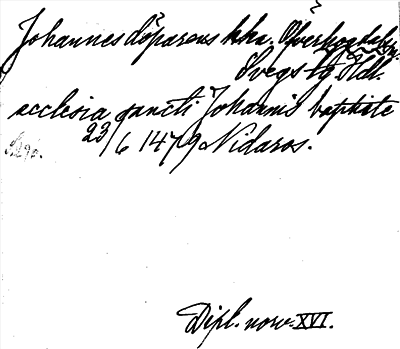 Johannes döparens kka. Överhogdal sn.
Svegs tg Hdl.
ecclesia sancti Johannis baptiste
23/6 1479 Nidaros.
Dipl. norv. XVI.